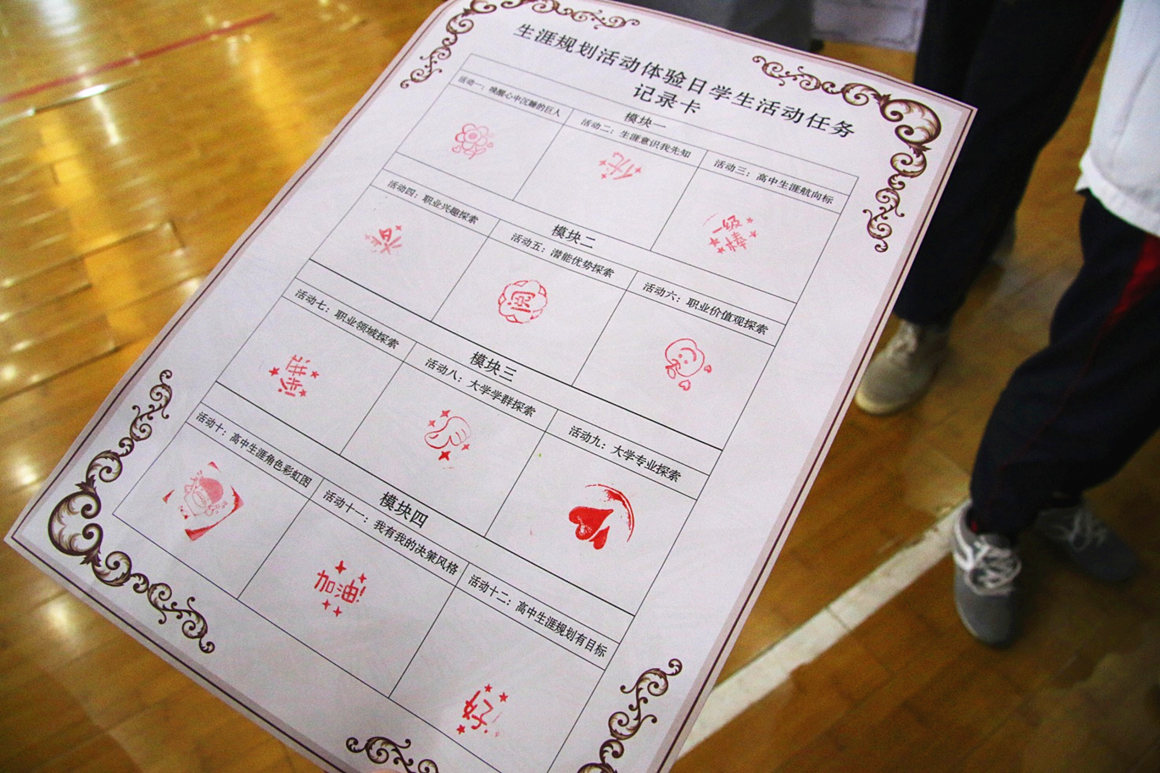 生涯规划活动体验日学生活动任务
记录卡
模块一
活动一：唤醒心中沉睡的巨人
活动二：生涯意识我先知
活动三：高中生涯航向标
优
级棒
模块二
活动四：职业兴趣探索
活动五：潜能优势探索
活动六：职业价值观探索
模块三
活动七：职业领域探索
活动八：大学学群探索
活动九：大学专业探索
模块四
活动十：高中生涯角色彩虹图
活动十一：我有我的决策风格
活动十二：高中生涯规划有目标
加油